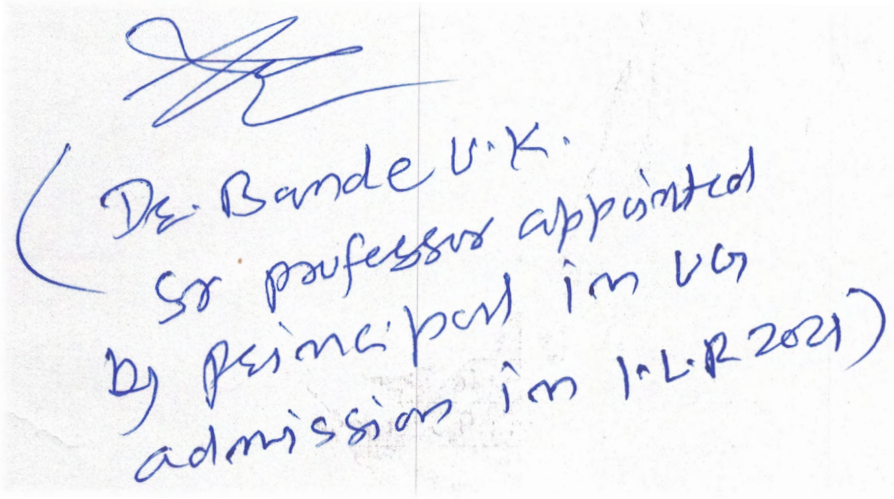 (Dr. Bande V.K.
Sr professor appointed
by principal in UG
admission in I.L.R 2021)